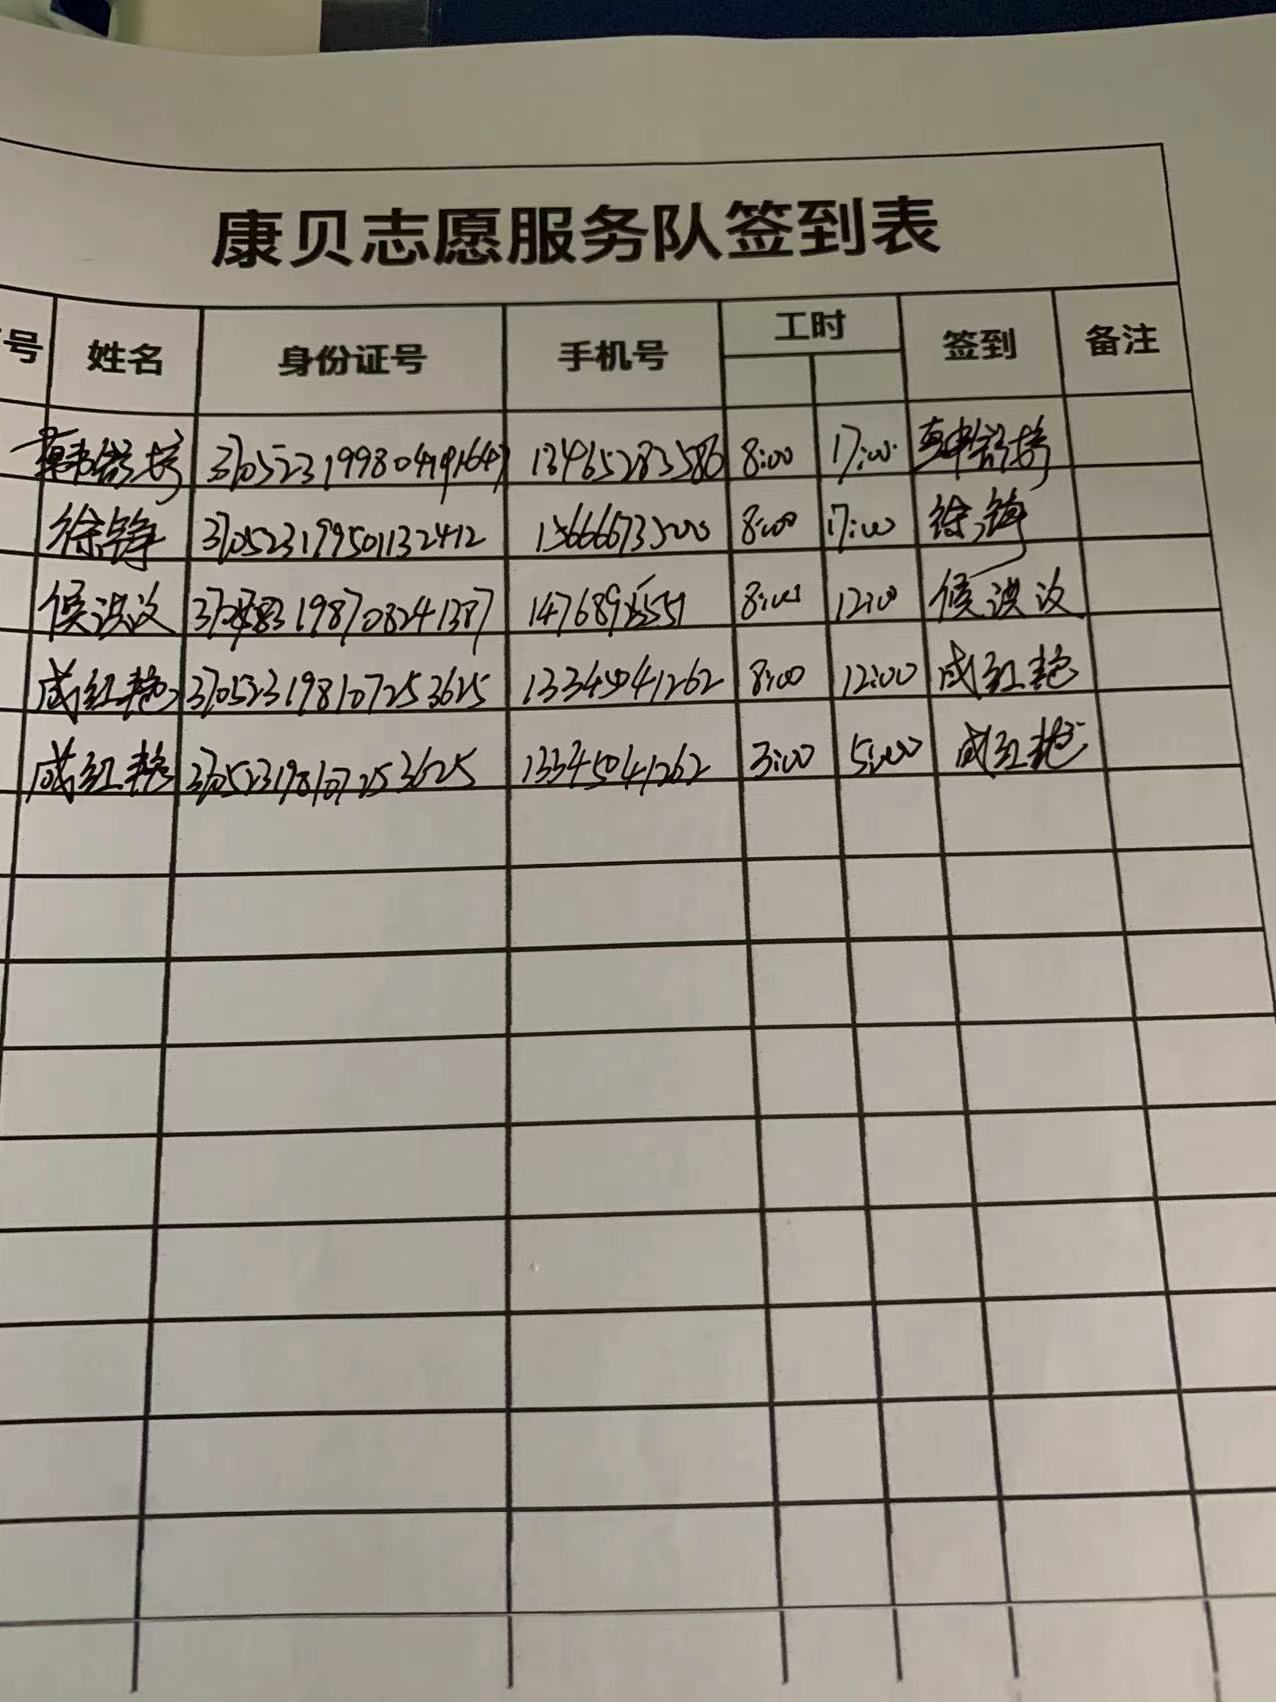 康贝志愿服务队签到表
号 姓名 身份证号 手机号 工时 签到 备注
370523199804191647 13465283586 8:00 17:00
徐铮 370523199501132412 15666673500 8:00 17:00 徐铮
侯洪汝 198708241387 8:00 12:00 侯洪汝
成红艳 370523198107253625 13345041262 8:00 12:00 成红艳
成红艳 370523198107253625 13345041262 3:00 5:00 成红艳